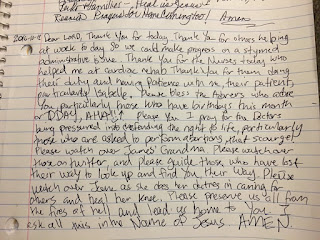 Heal us Jesus!
Amen
Dear LORD, Thank You for today. Thank You for others helping
at work today so we could make progress on a stymied
administrative issue. Thank You for the Nurses today who
helped me at cardiac rehab. Thank You for them doing
their duty and having patience with me, their patient,
particularly Isabelle. Please bless the Adorers who adore
You, particularly those who have birthdays this month
or TODAY, AHA! Please You I pray for the Doctors
being pressured into defending the right to life, particularly
those who are asked to perform abortions, that scourge!
Please watch over James' Grandma. Please watch over
those on twitter, and please guide those who have lost
their way to look up and find You, their Way. Please
watch over Jean as she does her duties in caring for
others and heal her knee. Please preserve us all from
the fires of hell and lead us home to You. I
ask all this in the Name of Jesus. AMEN.